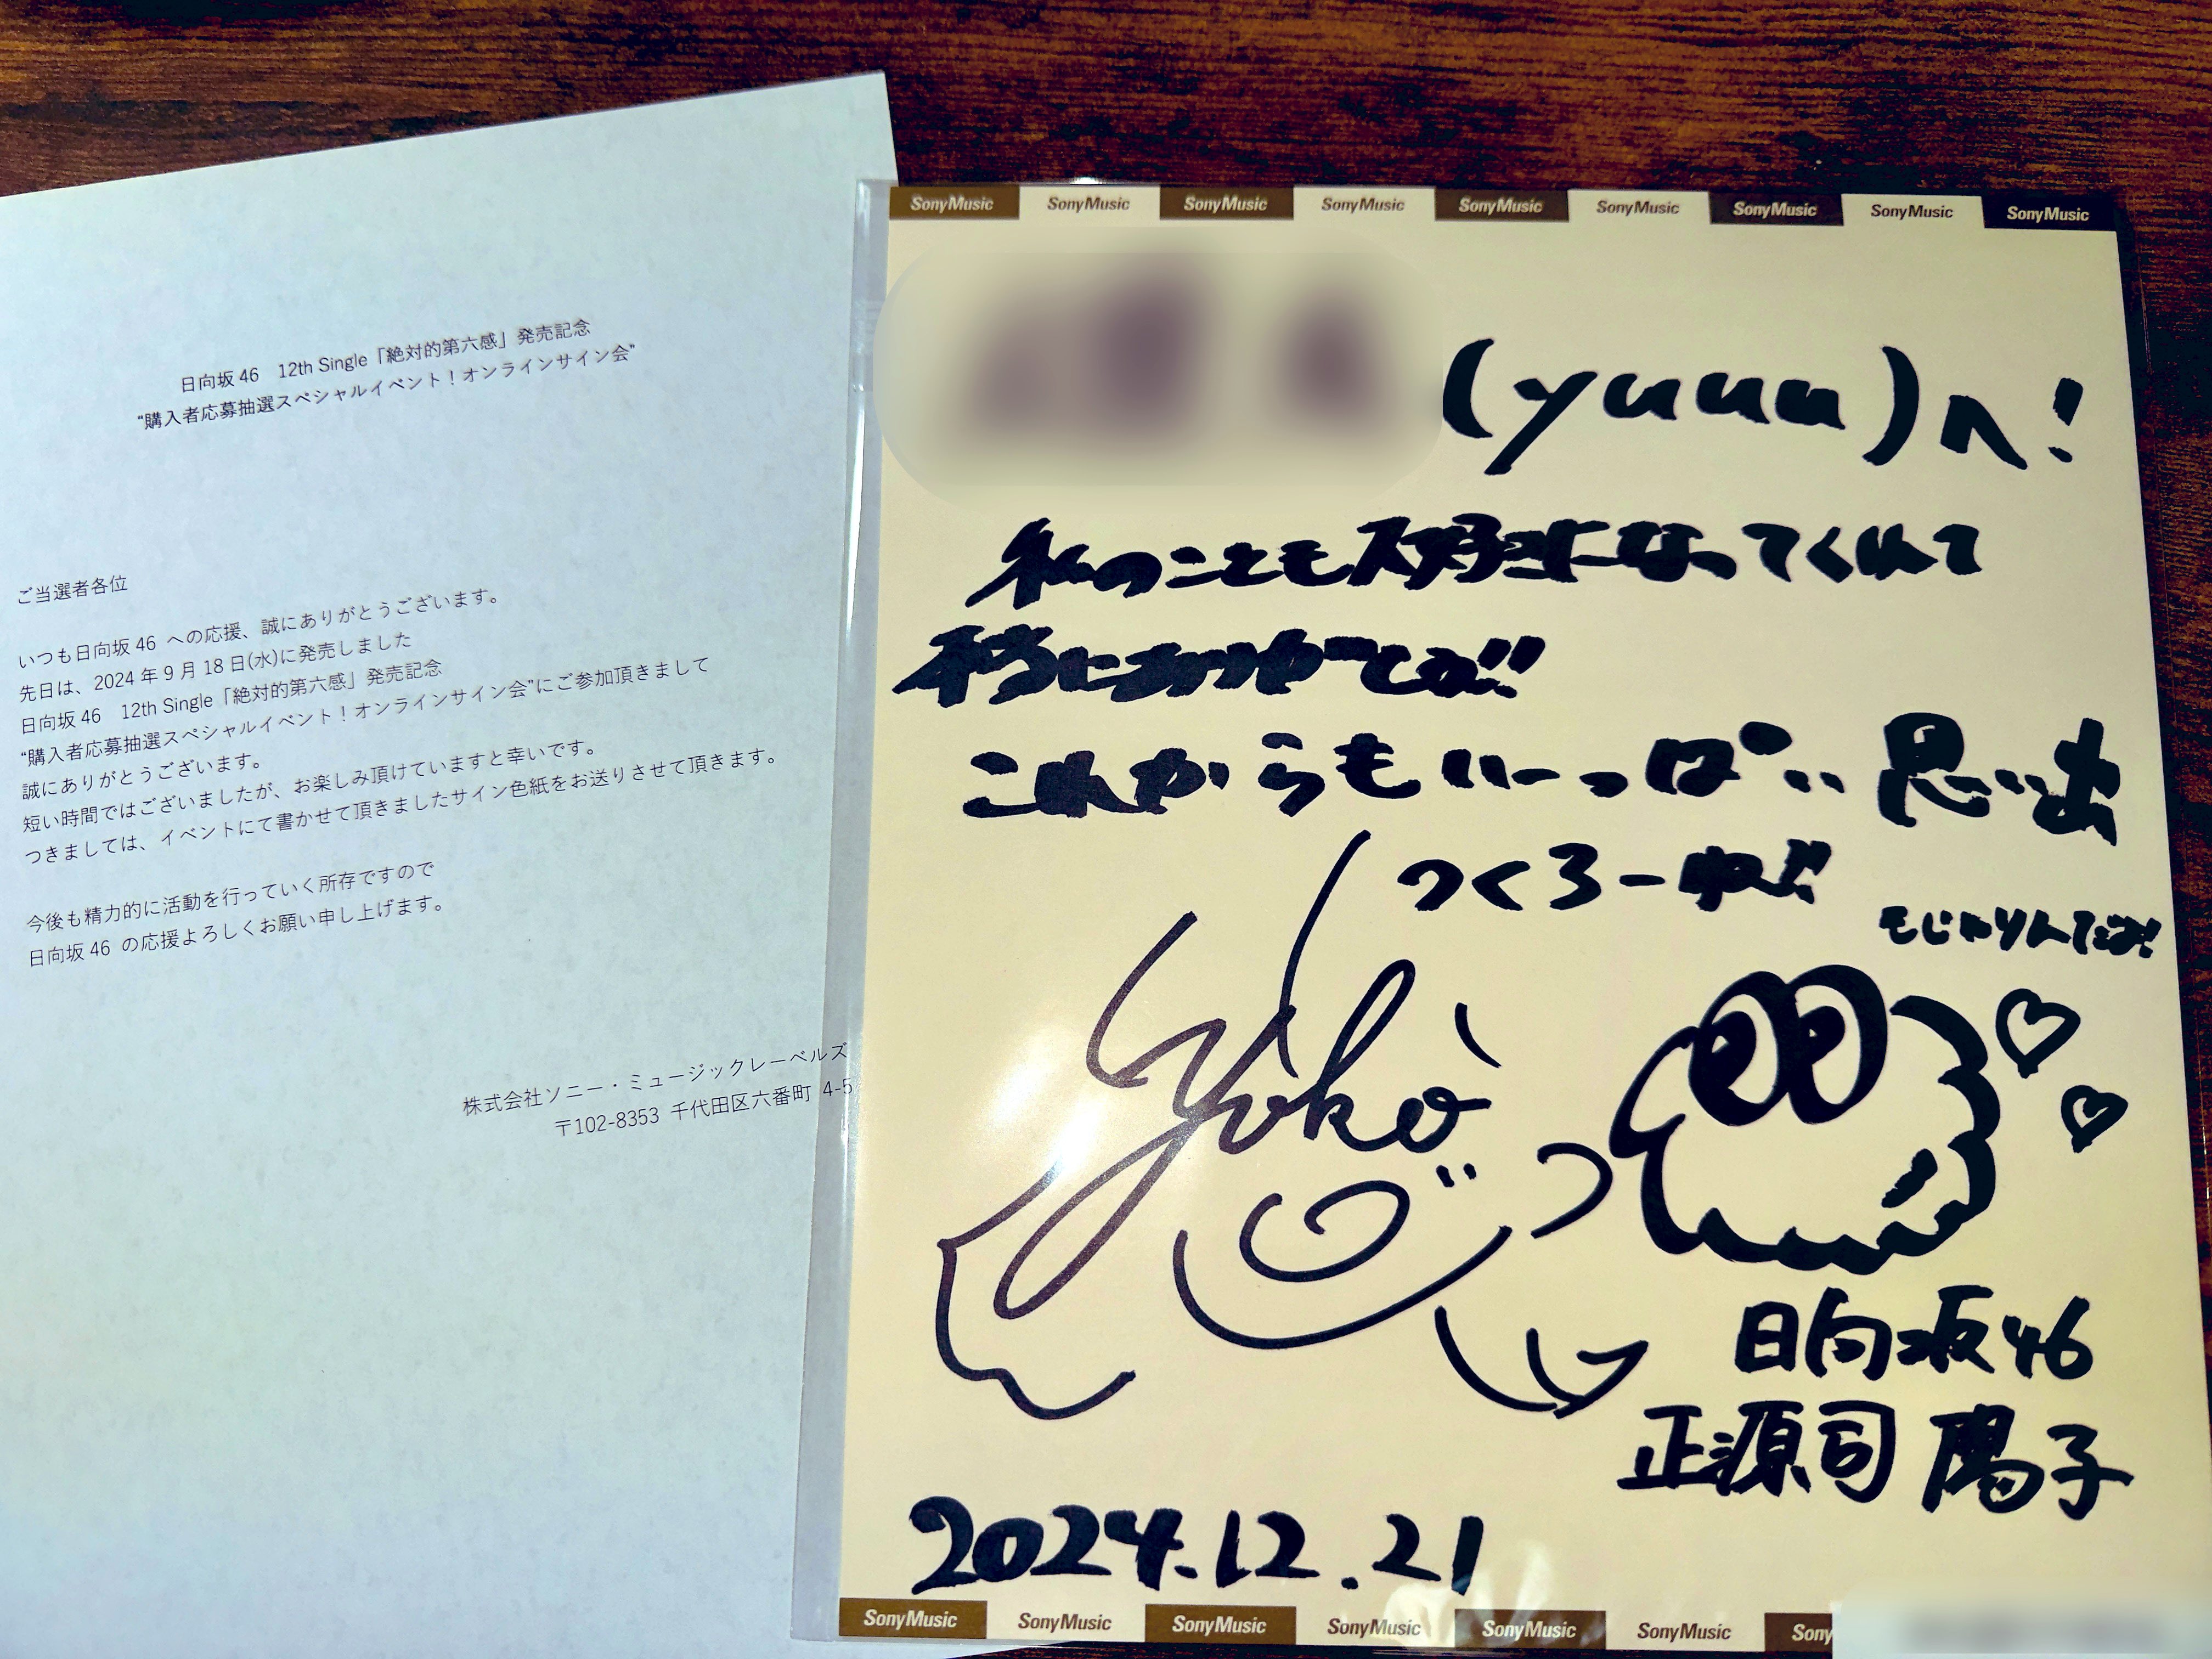 日向坂46　12th Single「絶対的第六感」発売記念
“購入者応募抽選スペシャルイベント！オンラインサイン会”
ご当選者各位
いつも日向坂46 への応援、誠にありがとうございます。
先日は、2024年9月18日(水)に発売しました
日向坂46　12th Single「絶対的第六感」発売記念
“購入者応募抽選スペシャルイベント！オンラインサイン会”にご参加頂きまして
誠にありがとうございます。
短い時間ではございましたが、お楽しみ頂けていますと幸いです。
つきましては、イベントにて書かせて頂きましたサイン色紙をお送りさせて頂きます。
今後も精力的に活動を行っていく所存ですので
日向坂46 の応援よろしくお願い申し上げます。
株式会社ソニー・ミュージックレーベルズ
〒102-8353 千代田区六番町 4-5
SonyMusic SonyMusic SonyMusic SonyMusic SonyMusic SonyMusic SonyMusic SonyMusic SonyMusic
(yuuu)へ!
私のことも大好きになってくれて
本当にありがとう!!
これからもいーっぱい思い出
つくろーね!!
もじゃりんだよ!
Yoko
日向坂46
正源司 陽子
2024.12.21
SonyMusic SonyMusic SonyMusic SonyMusic SonyMusic SonyMusic Sony